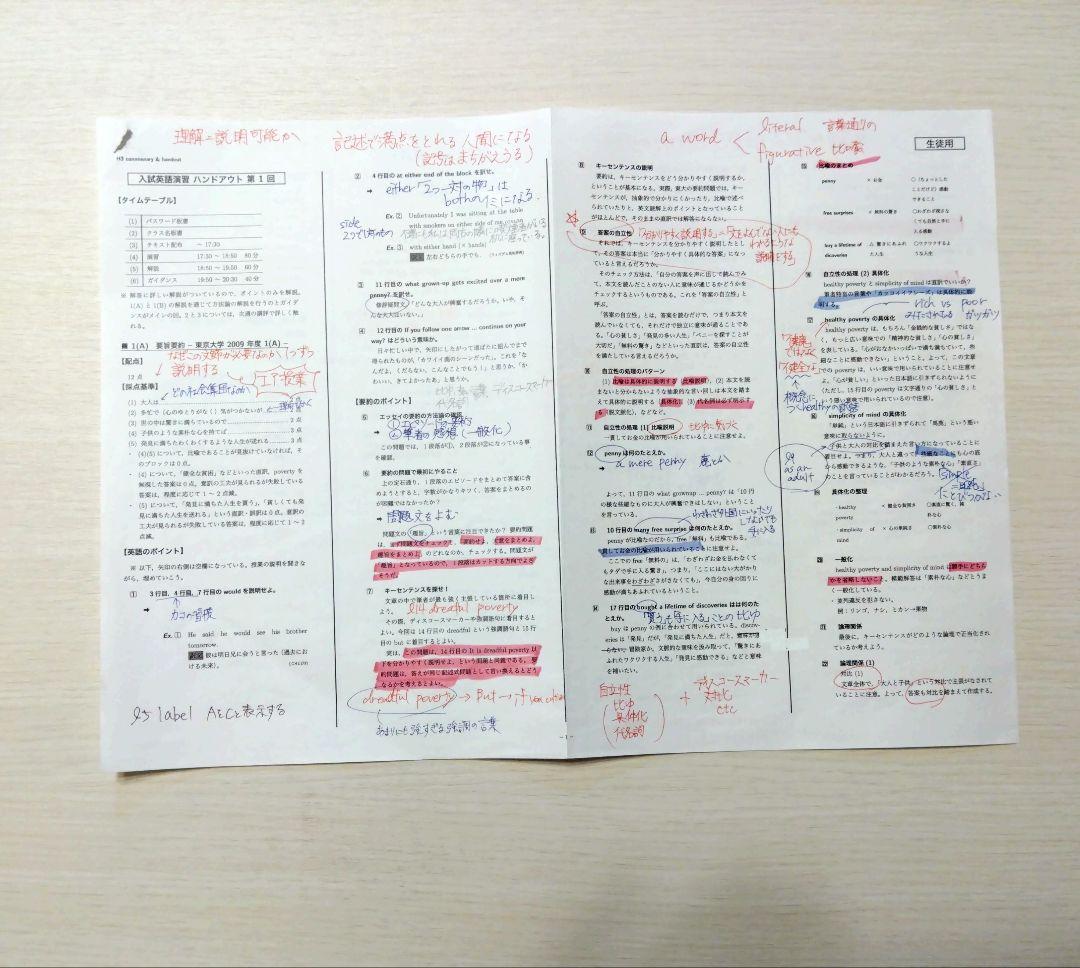 理解=説明可能か
記述で満点をとれる人間になる
(記号はまちがえうる)
H3 commentary & handout
入試英語演習 ハンドアウト 第1回
【タイムテーブル】
(1) パスワード板書
(2) クラス名板書
(3) テキスト配布 ～ 17:30
(4) 演習 17:30 ～ 18:50 80分
(5) 解説 18:50 ～ 19:50 60分
(6) ガイダンス 19:50 ～ 20:30 40分
※ 解答に詳しい解説がついているので、ポイントのみを解説。
1(A) と 1(B) の解説を通じて方法論の解説を行うとガイダ
ンスがメインの回。2と3については、次週の講評で詳しく触
れる。
■ 1(A) 要旨要約 − 東京大学 2009 年度 1(A) −
【配点】
なぜこの文章が必要なのか、1つずつ
説明する
12 点
エア授業
【採点基準】
(1) 大人は
(2) 多忙で (心のゆとりがなく) 気がつかないが、
(3) 世の中は驚きに満ちているので 2点
(4) 子供のような素朴な心を持てば 2点
(5) 発見に満ちたわくわくするような人生が送れる 3点
・ (4)(5) について、比喩であることが見抜けていなければ、そ
のブロックは0点。
・ (4) について、「健全な貧困」などといった直訳、poverty を
無視した答案は0点。意訳の工夫が見られるが失敗している
答案は、程度に応じて1～2点減。
・ (5) について、「発見に満ちた人生を買う」、「貧しくても発
見に満ちた人生を送れる」という直訳・誤訳は0点。意訳の
工夫が見られるが失敗している答案は、程度に応じて1～2
点減。
【英語のポイント】
※ 以下、矢印の右側は空欄になっている。授業の説明を聞きな
がら、埋めていこう。
① 3行目、4行目、7行目の would を説明せよ。
➡
カコの習慣
Ex. ① He said he would see his brother
tomorrow.
彼は明日兄に会うと言った (過去にお
ける未来)。
l5 label AをCと表示する
② 4行目の at either end of the block を訳せ。
➡ either「2つ一対の物」は
bothのイミになる
Ex. ② Unfortunately I was sitting at the table
with smokers on either side of me
side
2つで1対の物
Ex. ③ with either hand (× hands)
左右どちらの手でも。
③ 11行目の what grown-up gets excited over a mere
penny? を訳せ。
修辞疑問文「どんな大人が興奮するだろうか。いや、そ
んな大人はいない」
④ 12行目の If you follow one arrow ... continue on your
way? はどういう意味か。
日々忙しい中で、矢印にしたがって道ばたに屈んでまで
得られたものが、「カワイイ鳥のシーンだった」。これを「な
んだよ、くだらない、こんなことでもう！」と思うか、「か
わいい、きてよかったぁ」と思うか。
【要約のポイント】
⑤ エッセイの要約の方法論の確認
① エピソードの要約
② 筆者の感想 (一般化)
この問題では、1段落が①、2段落が②になっている事
を確認。
⑥ 要約の問題で最初にやること
上の定石通り、1段落のエピソードをまとめて答案に含
めようとすると、字数がかなりキツく、答案をまとめるの
が困難ではなかったか？
➡ 問題文をよむ
問題文の「趣旨」という言葉に注目できたか？ 要約問題
は、まず問題文をチェックせよ。要約せよ、大意をまとめよ、
趣旨をまとめよ、のどれなのか、チェックする。問題文が
「趣旨」となっているので、1段落はカットする方向でよさ
そうだ。
⑦ キーセンテンスを探せ！
文章の中で筆者が最も強く主張している箇所に着目しよう。
l14 dreadful poverty
その際、ディスコースマーカーや強調語句に着目すると
よい。今回は14行目の dreadful という強調語句と15行
目の but に着目するとよい。
実は、この問題は、14行目の It is dreadful poverty 以
下を分かりやすく説明せよ、という問題と同義である。要
約問題は、答えが同じ記述式問題として言い換えるとどう
なるかを考えるとよい。
dreadful poverty → But → if
あまりにも強すぎる強調の言葉
a word < literal 言葉通りの
figurative 比喩
生徒用
⑧ キーセンテンスの説明
要約は、キーセンテンスをどう分かりやすく説明するか、
ということが基本になる。実際、東大の要約問題では、キー
センテンスが、抽象的で分かりにくかったり、比喩で述べ
られていたりと、英文読解上のポイントとなっていること
がほとんどで、そのままの直訳では解答にならない。
⑨ 答案の自立性
「分かりやすく説明する」=「文をよんでない人にも
わかるような
説明をする」
それでは、キーセンテンスを分かりやすく説明したとし
て、その答案は本当に「分かりやすく具体的な答案」になっ
ていると言えるだろうか。
そのチェック方法は、「自分の答案を声に出して読んでみ
て、本文を読んだことのない人に意味が通じるかどうかを
チェックするというものである。これを「答案の自立性」と
呼ぶ。
「答案の自立性」とは、答案を読むだけで、つまり本文を
読んでいなくても、それだけで独立に意味が通ることであ
る。「心の貧しさ」「発見の多い人生」「ペニーを探すことが
大切だ」「無料の驚き」などといった直訳は、答案の自立性
を満たしていると言えるだろうか。
⑩ 自立性の処理のパターン
(1) 比喩は具体的に説明する (比喩説明) (2) 本文を読
まないと分からないような抽象的な言い回しは本文を踏ま
えて具体的に説明する (具体化) (3) 代名詞は必ず明示す
る (脱文脈化)、などなど。
⑪ 自立性の処理 (1) 比喩説明
一貫してお金の比喩が用いられていることに注意せよ。
⑫ penny は何のたとえか。
➡ a mere penny
よって、11行目の what grownup ... penny? は「10円
の様な些細なものに大人が興奮できはしない」というこ
とを言っている。
わざわざ外国にいったり
しなくても
手に入る
⑬ 10行目の many free surprise は何のたとえか。
penny が比喩なのだから、free「無料」も比喩である。
一貫してお金の比喩が用いられていることに注意せよ。
ここでの free「無料の」は、「わざわざお金を払わなく
ともタダで手に入る驚き」、つまり、「ここにはない大がか
りな出来事をわざわざさがさなくても」、今自分の身の回りに
感動が満ちあふれているということ。
⑭ 17行目の bought a lifetime of discoveries はは何のた
とえか。
「買う」も「手に入る」ことの比ゆ
buy は penny の例に合わせて用いられている。discov-
eries は「発見」だが、「発見に満ちた人生」だと、意味が通
らない。冒険家か。文脈的な意味を汲み取って、「驚きにあ
ふれたワクワクする人生」「発見に感動できる」などと意味
を補いたい。
自立性
比ゆ
具体化
代名詞
+ ディスコースマーカー
対比
etc
- 1 -
⑮ 比喩のまとめ
penny × お金 ○ (ちょっとした
ことだけど) 感動
できること
free surprises × 無料の驚き ○わざわざ探さな
くても自然と手に
入る感動
buy a lifetime of 驚きにあふれ ○ワクワクするよ
dicoveries た人生 うな人生
⑯ 自立性の処理 (2) 具体化
healthy poverty と simplicity of mind は直訳でいいか？
筆者特有の言葉や「カッコイイフレーズ」は具体的に説
明する。
rich vs poor
みたされてる ガッガツ
⑰ healthy poverty の具体化
healthy poverty は、もちろん「金銭的な貧しさ」ではな
く、もっと広い意味での「精神的な貧しさ」「心の貧しさ」
を表している。「心がおなかいっぱいで満ち満ちていて、些
細なことに感動できない」ということ。よって、この文章
での poverty は、いい意味で用いられていることに注意。
「心が貧しい」といった日本語に引きずられないように
(ただし、15行目の poverty は文字通りの「心の貧しさ」と
いう悪い意味で用いられているので注意)。
「健康」
ではなく
「健全」
⑱ simplicity of mind の具体化
「単純」という日本語に引きずられて「馬鹿」という悪い
意味に取らないように。
子供と大人の対比を踏まえた言い方になっていることに
着目せよ。つまり、大人と違って、些細なことにも心の底
から感動できるような、「子供のような素朴さ」「素直さ」
のことを言っていることがわかるだろう。
l9
as an
adult
「simple
=単純」
にとびつかない
⑲ 具体化の整理
・healthy poverty × 健全な貧困さ ○素直に驚く、純
朴な心
・simplicity of mind × 心の単純さ ○素朴な心
⑳ 一般化
healthy poverty and simplicity of mind は勝手にどちら
かを省略しないこと。模範解答は「素朴な心」などとうま
く一般化している。
・並列選択を拒きない。
例：リンゴ、ナシ、ミカン→果物
㉑ 論理関係
最後に、キーセンテンスがどのような論理で正当化され
ているか考えてみよう。
㉒ 論理関係 (1)
対比 (1)
文章全体で、「大人と子供」という対比で主張がなされて
いることに注意。よって、答案も対比を踏まえて作成する。